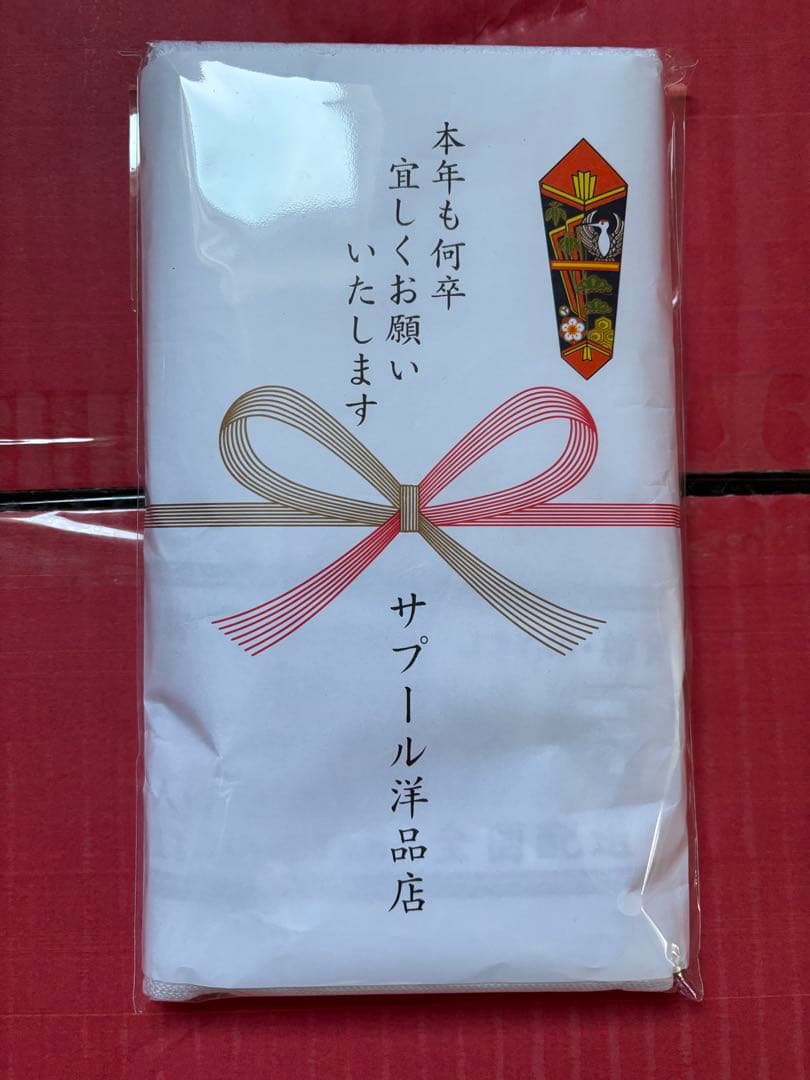 本年も何卒
宜しくお願い
いたします
サプール洋品店